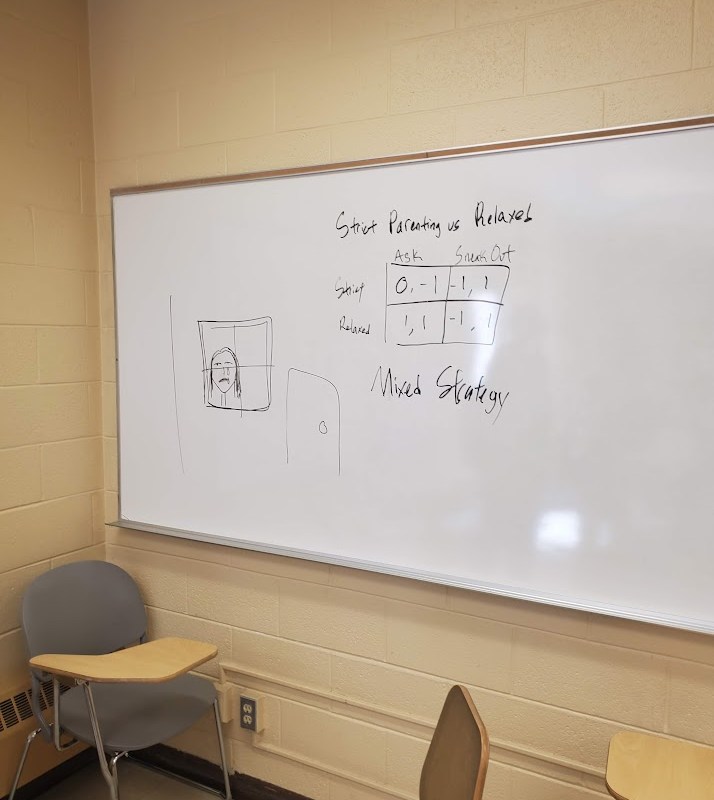 Strict Parenting vs Relaxed
Ask Sneak Out
Strict 0, -1 -1, 1
Relaxed 1, 1 -1, 1
Mixed Strategy